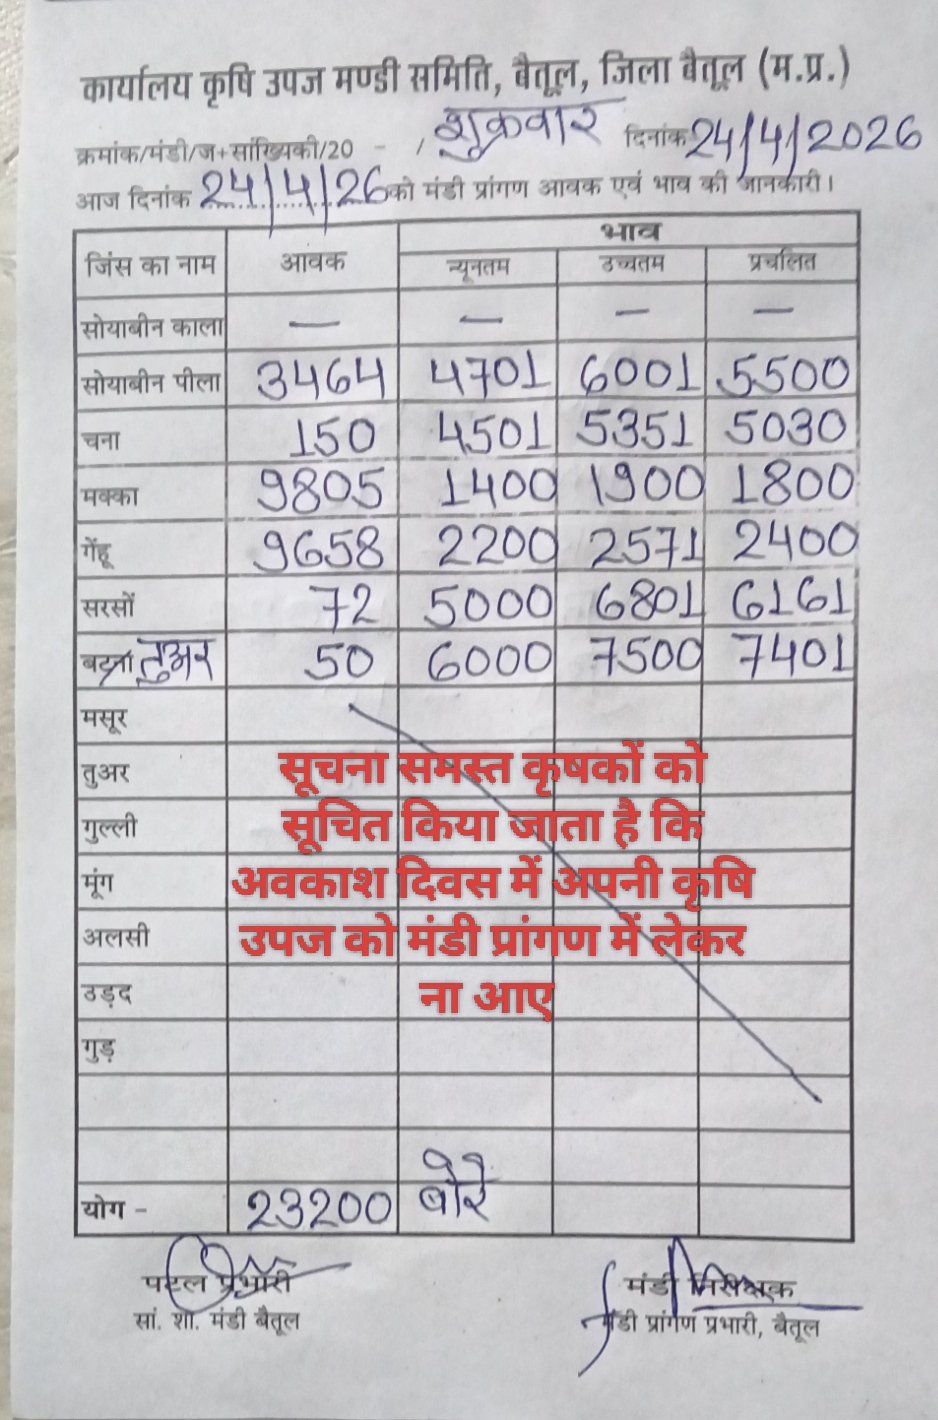 कार्यालय कृषि उपज मण्डी समिति, बैतूल, जिला बैतूल (म.प्र.)
क्रमांक/मंडी/ज+सांख्यिकी/20 - / शुक्रवार दिनांक 24/4/2026
आज दिनांक 24/4/26 को मंडी प्रांगण आवक एवं भाव की जानकारी।
जिंस का नाम आवक भाव
न्यूनतम उच्चतम प्रचलित
सोयाबीन काला — — — —
सोयाबीन पीला 3464 4701 6001 5500
चना 150 4501 5351 5030
मक्का 9805 1400 1900 1800
गेंहू 9658 2200 2571 2400
सरसों 72 5000 6801 6161
तुअर 50 6000 7500 7401
मसूर
तुअर
गुल्ली
मूंग
अलसी
उड़द
गुड़
सूचना समस्त कृषकों को
सूचित किया जाता है कि
अवकाश दिवस में अपनी कृषि
उपज को मंडी प्रांगण में लेकर
ना आए
योग - 23200 बोरे
प्रभारी मंडी
सां. शा. मंडी बैतूल मंडी प्रांगण प्रभारी, बैतूल